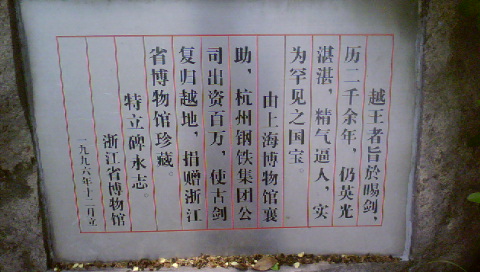 越王者旨於睗剑，
历二千余年，仍英光
湛湛，精气逼人，实
为罕见之国宝。
由上海博物馆襄
助，杭州钢铁集团公
司出资百万，使古剑
复归越地，捐赠浙江
省博物馆珍藏。
特立碑永志。
浙江省博物馆
一九九六年十二月立